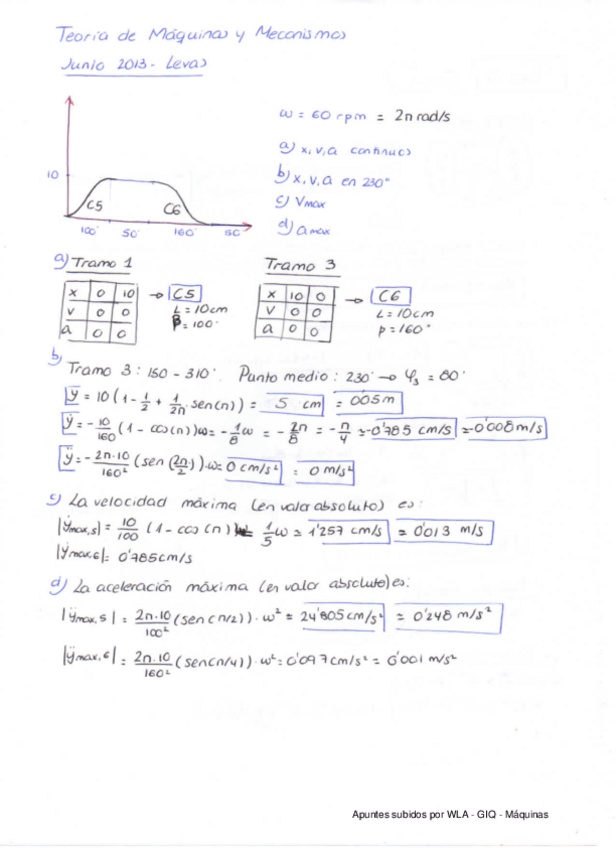 Teoría de Máquinas y Mecanismos
Junio 2013 - Levas
ω = 60 rpm = 2π rad/s
a) x, v, a continuos
b) x, v, a en 230°
c) Vmax
d) amax
10
C5 C6
100° 50° 160° 50°
a) Tramo 1
x 0 10 → C5
v 0 0 L = 10cm
a 0 0 β = 100°
Tramo 3
x 10 0 → C6
v 0 0 L = 10cm
a 0 0 β = 160°
b) Tramo 3: 150 - 310°. Punto medio: 230° → φ₃ = 80°
y = 10 (1 - 1/2 + 1/2π sen(π)) = 5 cm = 0'05m
ẏ = - 10/160 (1 - cos(π)) ω = - 1/8 ω = - 2π/8 = - π/4 = -0'785 cm/s = -0'008 m/s
ÿ = - 2π·10/160² (sen (2π/2))·ω = 0 cm/s² = 0 m/s²
c) La velocidad máxima (en valor absoluto) es:
|ẏmax,5| = 10/100 (1 - cos (π)) = 1/5 ω = 1'257 cm/s = 0'013 m/s
|ẏmax,6| = 0'785cm/s
d) La aceleración máxima (en valor absoluto) es:
|ÿmax,5| = 2π·10/100² (sen (π/2))·ω² = 24'805 cm/s² = 0'248 m/s²
|ÿmax,6| = 2π·10/160² (sen(π/4))·ω² = 0'097 cm/s² = 0'001 m/s²
Apuntes subidos por WLA - GIQ - Máquinas